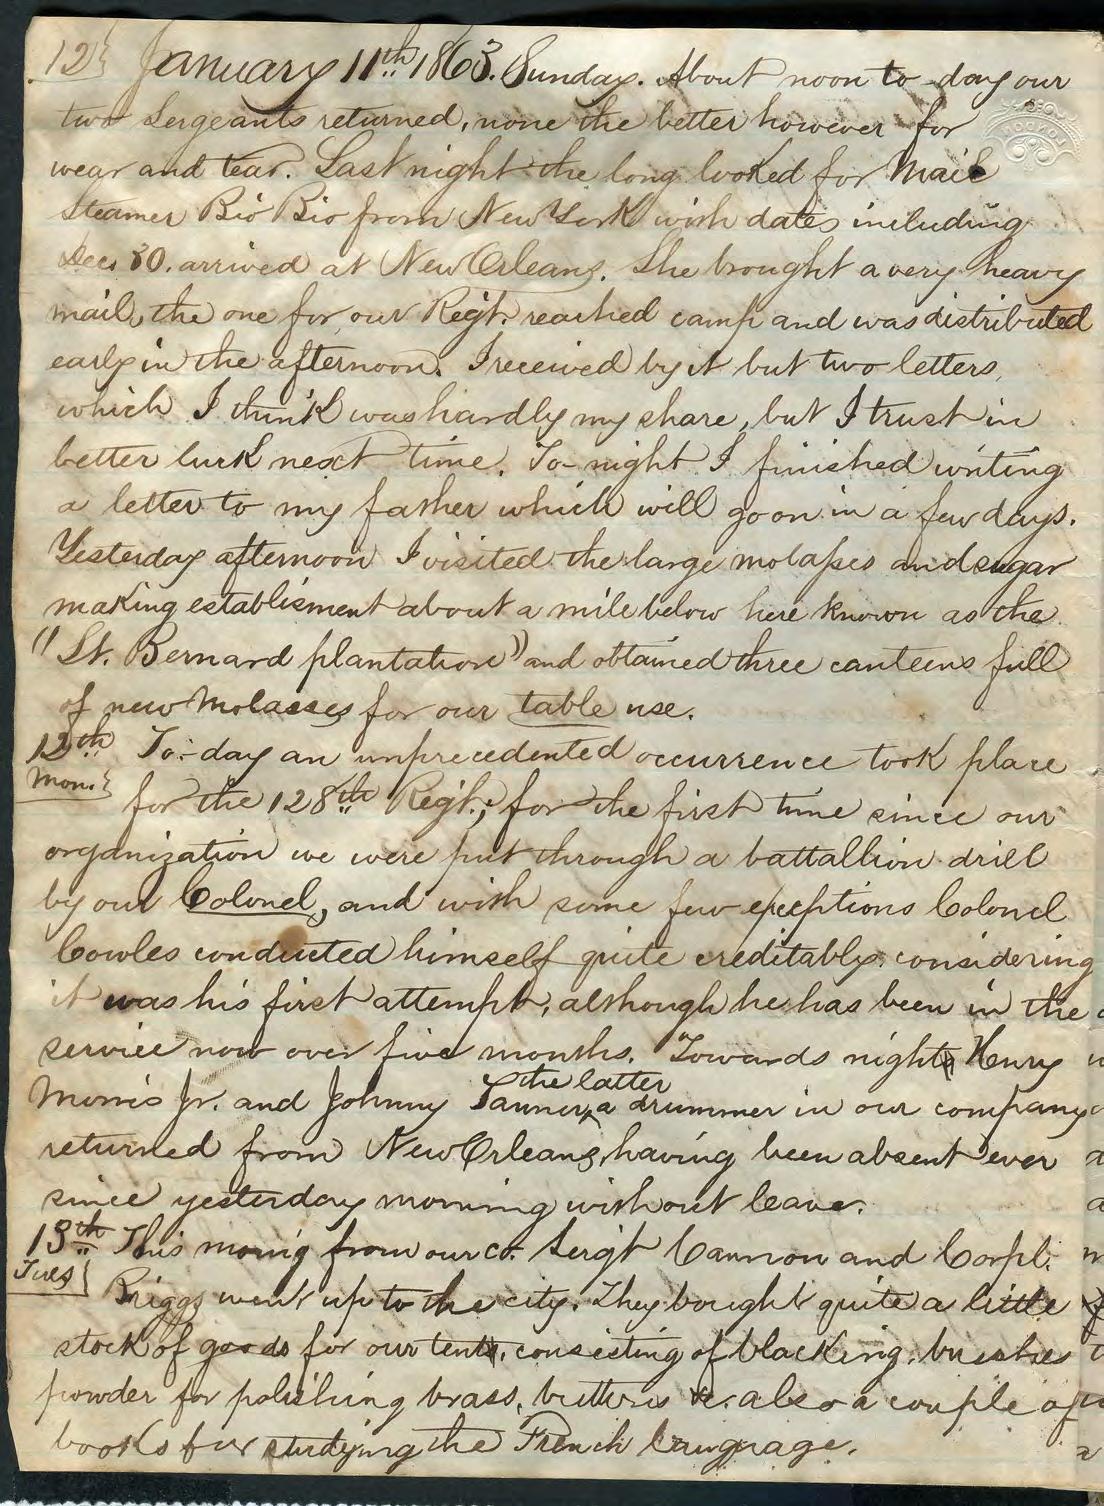 12} January 11th 1863. Sunday. About noon to-day our
two Sergeants returned, none the better however for
wear and tear. Last night the long looked for Mail
Steamer Bio Bio from New York with dates including
Dec. 30. arrived at New Orleans. She brought a very heavy
mail, the one for our Regt. reached camp and was distributed
early in the afternoon. I received by it but two letters,
which I think was hardly my share, but I trust in
better luck next time. To-night I finished writing
a letter to my father which will go on in a few days.
Yesterday afternoon I visited the large molasses and sugar
making establisment about a mile below here known as the
"St. Bernard plantation" and obtained three canteens full
of new Molasses for our table use.
12th To-day an unprecedented occurrence took place
Mon.} for the 128th Regt.; for the first time since our
organization we were put through a battallion drill
by our Colonel, and with some few exceptions Colonel
Cowles conducted himself quite creditably, considering
it was his first attempt, although he has been in the
service now over five months. Towards night Henry
Morris Jr. and Johnny Tanner, the latter a drummer in our company
returned from New Orleans, having been absent ever
since yesterday morning without leave.
13th This morng from our co. Sergt Cannon and Corpl.
Tues} Briggs went up to the city. They bought quite a little
stock of goods for our tent, consisting of blacking, brushes
powder for polishing brass, buttons &c. also a couple of
books for studying the French language.